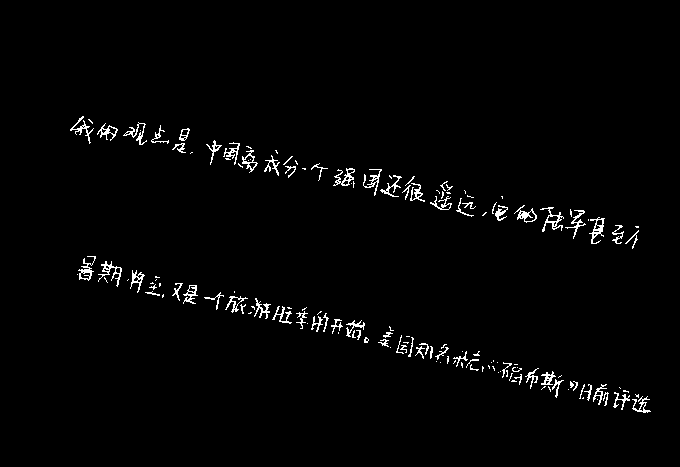 我的观点是,中国离成分一个强国还很遥远,它的陆军甚至不
暑期将至,又是一个旅游旺季的开始。美国知名杂志《福布斯》日前评选